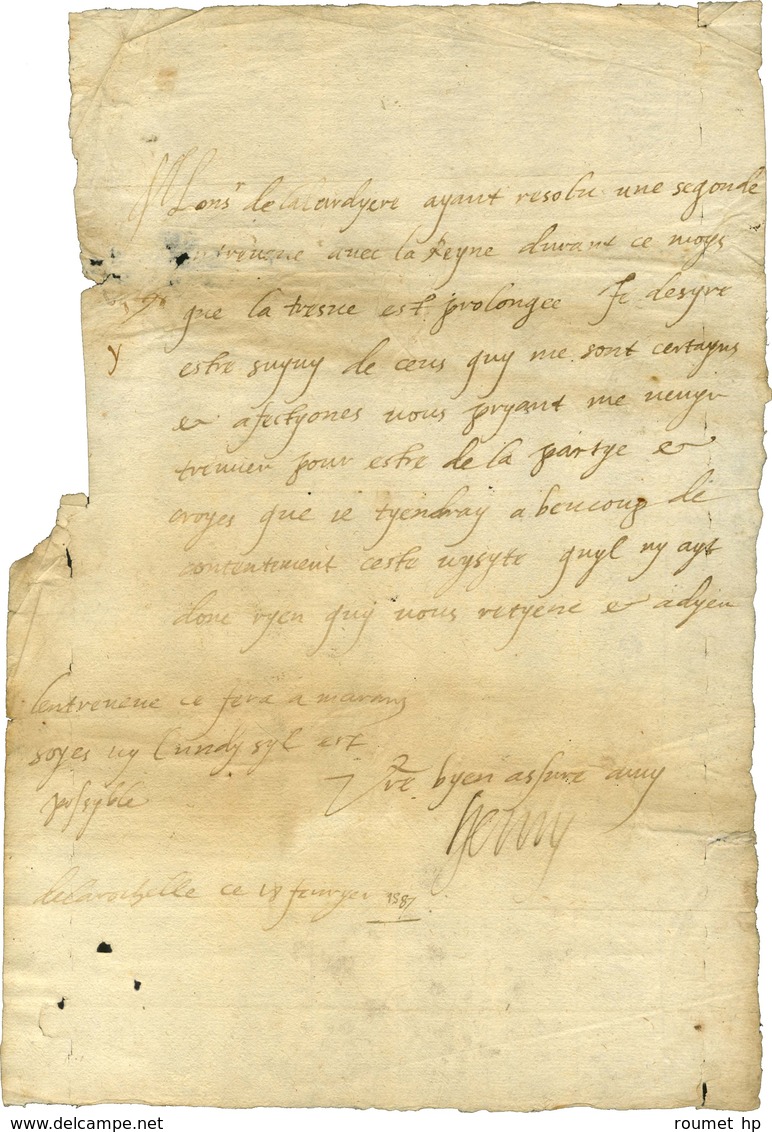 Mons.r de lalardyere ayant resolu une segonde
entreveue avec la Reyne durant ce moys
que la tresve est prolongee Je desyre
estre suyvy de ceus quy me sont certayns
& afectyones vous pryant me venyr
treuver pour estre de la partye &
croyes que ie tyendray a beaucoup de
contentement ceste vysyte quyl ny ayt
donc ryen quy vous retyene & adyeu
y
lentreveue ce fera a marans
soyes uy lundy syl est
possyble
Vre byen assure amy
Henry
de la rochelle ce 18 fevryer 1587
www.delcampe.net
roumet hp